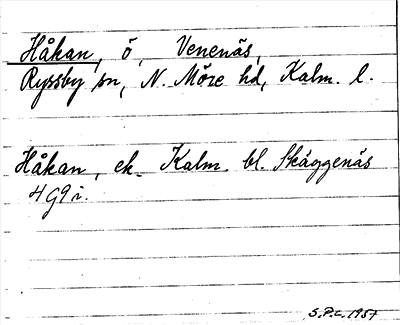 Håkan, ö, Venenäs,
Ryssby sn, N. Möre hd, Kalm. l.
Håkan, ek. Kalm. bl. Skäggenäs
4 G 9 i.
S.P.L. 1957